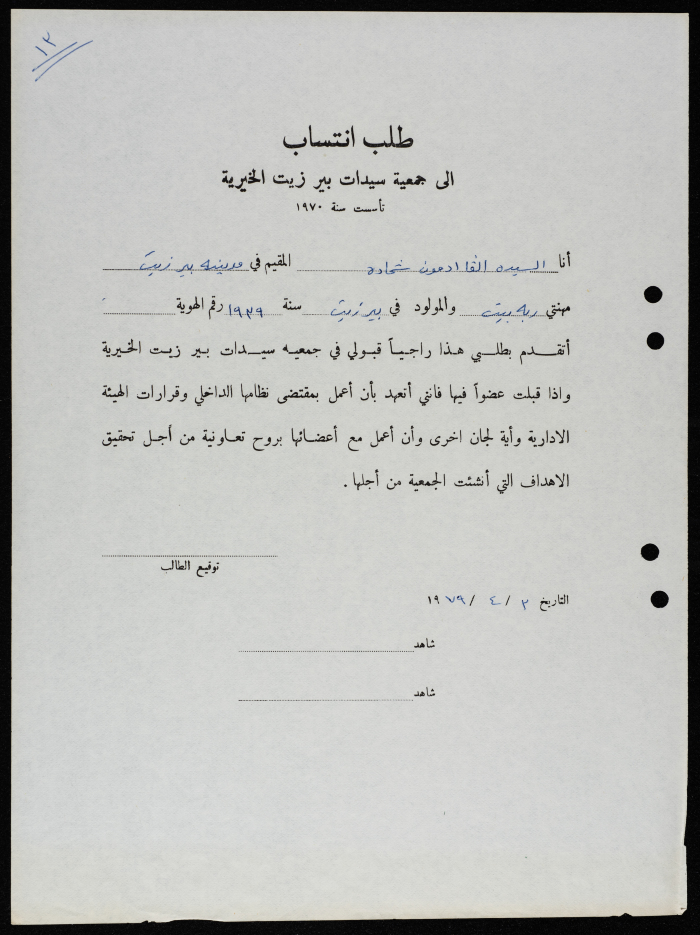 ١٣
طلب انتساب
الى جمعية سيدات بير زيت الخيرية
تأسست سنة ١٩٧٠
أنا السيده الفا ادمون شحادة المقيم في مدينه بير زيت
مهنتي ربه بيت والمولود في بير زيت سنة ١٩٣٩ رقم الهوية
أتقدم بطلبي هذا راجياً قبولي في جمعيه سيدات بير زيت الخيرية
واذا قبلت عضواً فيها فانني أتعهد بأن أعمل بمقتضى نظامها الداخلي وقرارات الهيئة
الادارية وأية لجان اخرى وأن أعمل مع أعضائها بروح تعاونية من أجل تحقيق
الاهداف التي أنشئت الجمعية من أجلها .
توقيع الطالب
التاريخ ٢ / ٤ / ١٩٧٩
شاهد
شاهد